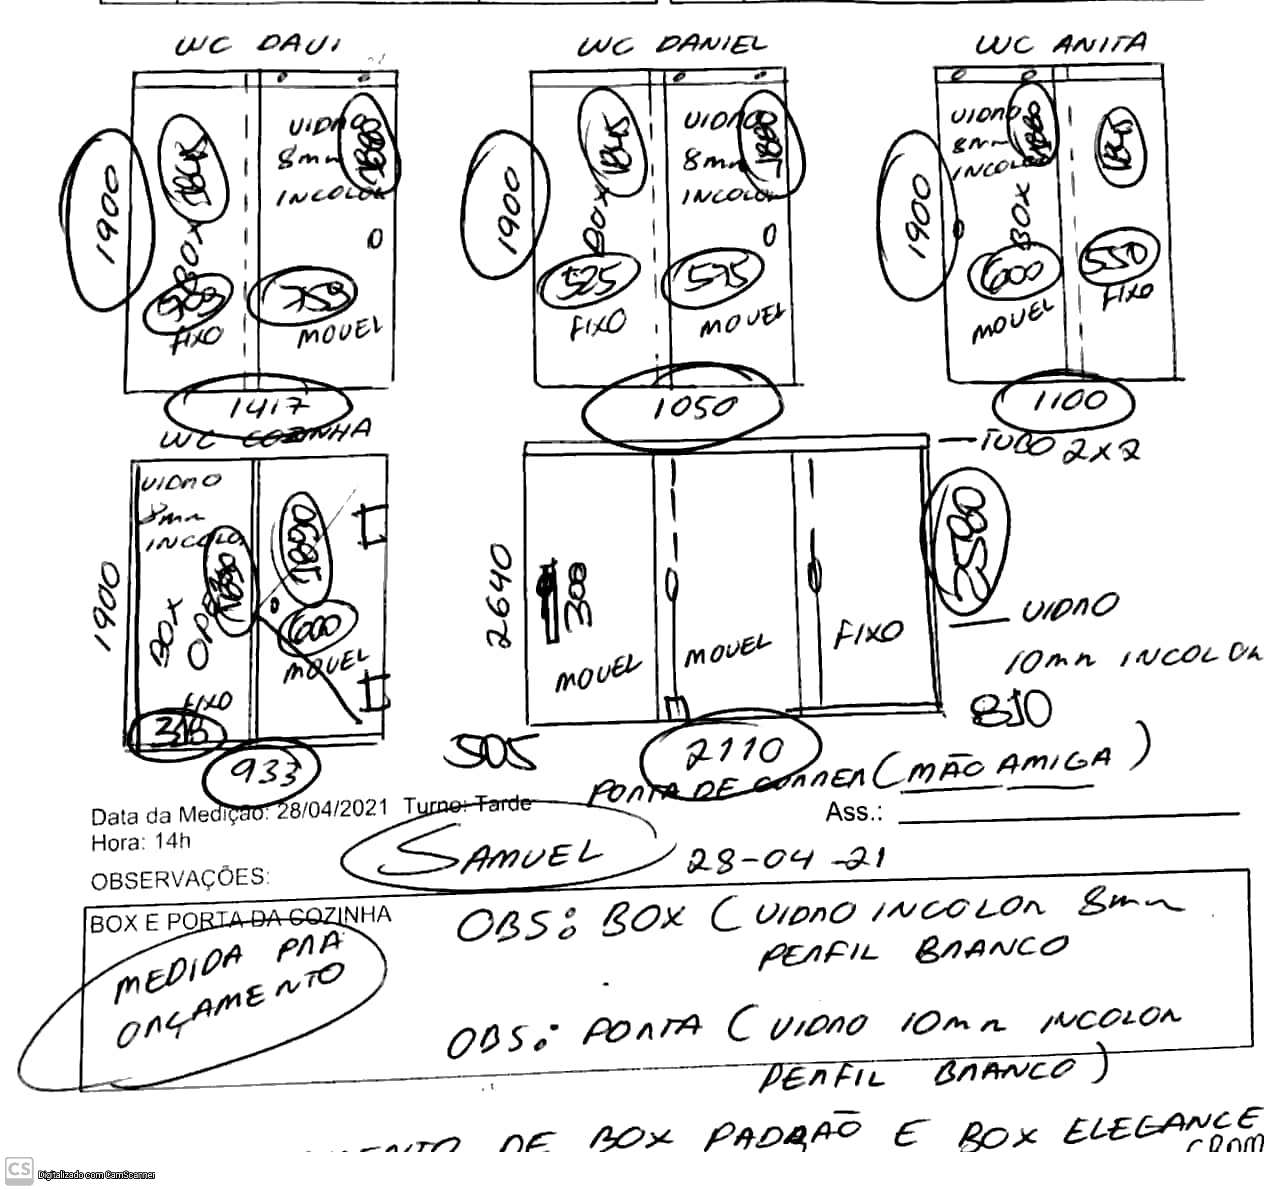 WC DAVI
1900
1845
BOX
VIDRO
8mm
INCOLOR
1880
759
FIXO
MOVEL
1417
WC DANIEL
1900
1845
BOX
VIDRO
8mm
INCOLOR
1880
525
575
FIXO
MOVEL
1050
WC ANITA
1900
VIDRO
8mm
INCOLOR
1880
1845
BOX
600
550
MOVEL
FIXO
1100
WC COZINHA
1900
VIDRO
8mm
INCOLOR
BOX
1890
600
MOVEL
FIXO
318
933
TUBO 2x2
2640
300
2580
MOVEL
MOVEL
FIXO
VIDRO
10mm INCOLOR
505
2110
810
PORTA DE CORRER (MÃO AMIGA)
Data da Medição: 28/04/2021 Turno: Tarde
Hora: 14h
Ass.:
SAMUEL 28-04-21
OBSERVAÇÕES:
BOX E PORTA DA COZINHA
MEDIDA PRA
ORÇAMENTO
OBS: BOX (VIDRO INCOLOR 8mm
PERFIL BRANCO
OBS: PORTA (VIDRO 10mm INCOLOR
PERFIL BRANCO)
DE BOX PADRÃO E BOX ELEGANCE
CS Digitalizado com CamScanner